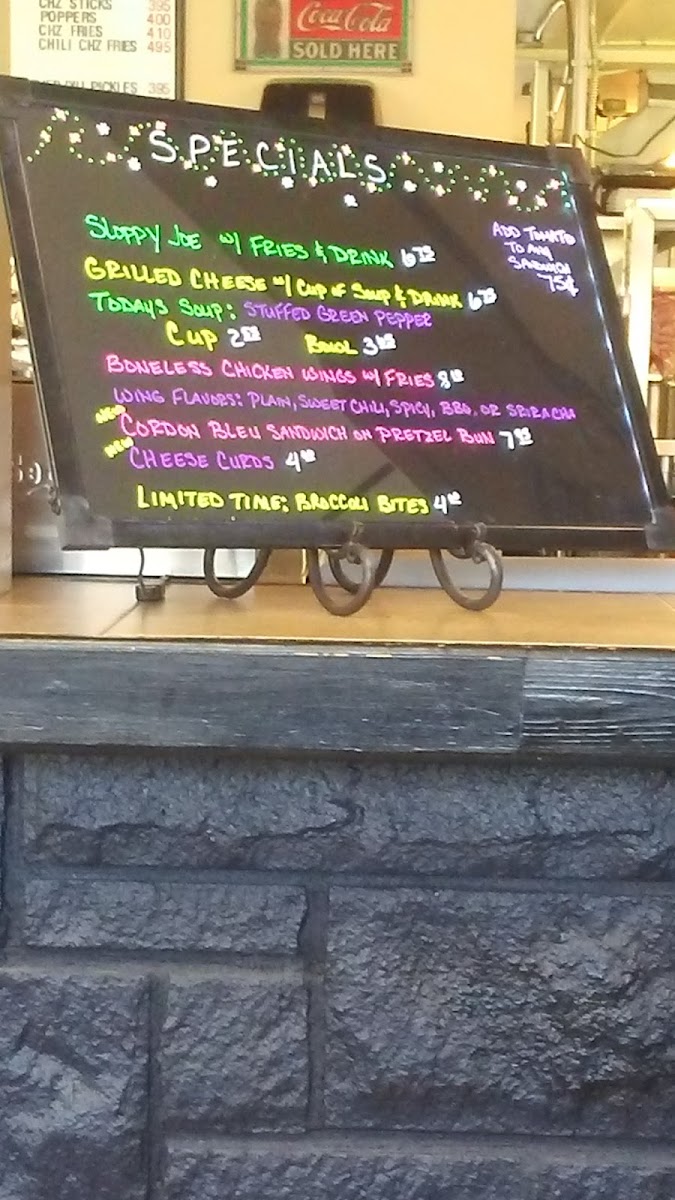 CHZ STICKS 395
POPPERS 400
CHZ FRIES 410
CHILI CHZ FRIES 495
PICKLES 395
Coca-Cola
SOLD HERE
SPECIALS
SLOPPY JOE W/ FRIES & DRINK 6
ADD TOMATO
TO ANY
SANDWICH
75¢
GRILLED CHEESE W/ CUP OF SOUP & DRINK 6
TODAYS SOUP: STUFFED GREEN PEPPER
CUP 2 BOWL 3
BONELESS CHICKEN WINGS W/ FRIES 8
WING FLAVORS: PLAIN, SWEET CHILI, SPICY, BBQ, OR SRIRACHA
NEW CORDON BLEU SANDWICH ON PRETZEL BUN 7
NEW CHEESE CURDS 4
LIMITED TIME: BROCCOLI BITES 4